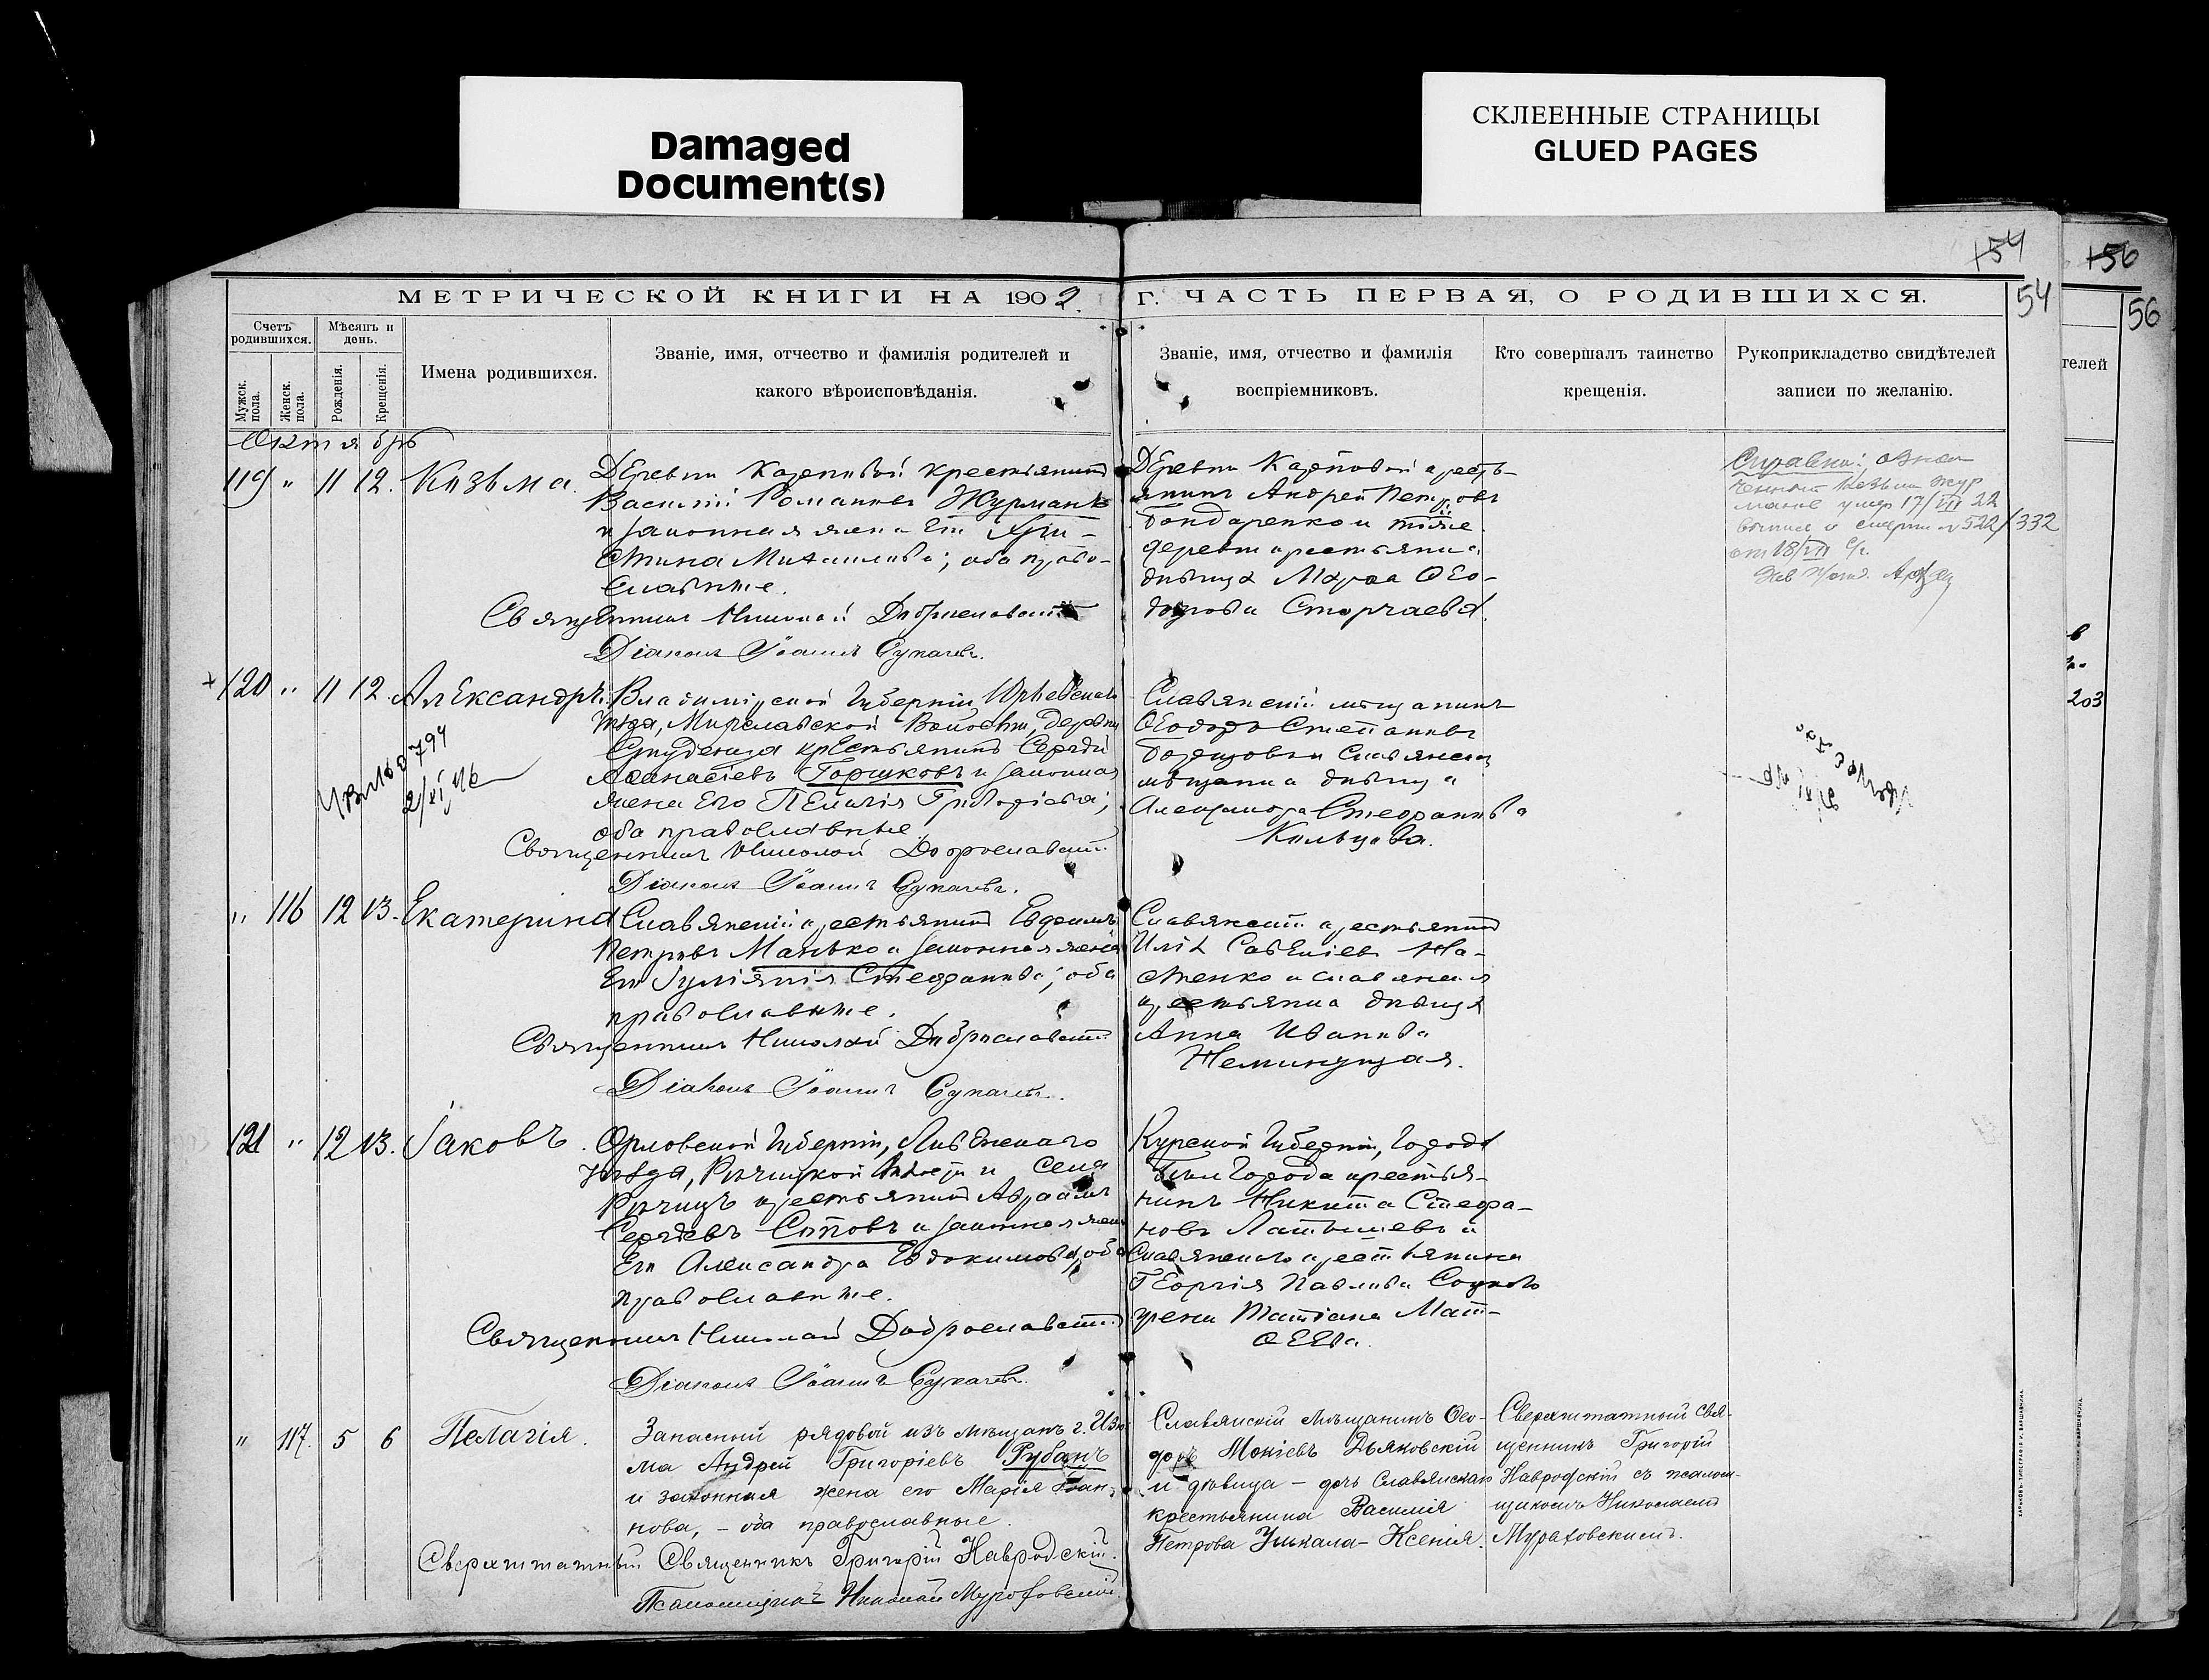 Damaged
Document(s)
СКЛЕЕННЫЕ СТРАНИЦЫ
GLUED PAGES
154
156
МЕТРИЧЕСКОЙ КНИГИ НА 1902
Г. ЧАСТЬ ПЕРВАЯ, О РОДИВШИХСЯ.
54
56
Счетъ родившихся.
Мѣсяцъ и день.
Мужск. пола.
Женск. пола.
Рожденія.
Крещенія.
Имена родившихся.
Званіе, имя, отчество и фамилія родителей и
какого вѣроисповѣданія.
Званіе, имя, отчество и фамилія
воспріемниковъ.
Кто совершалъ таинство
крещенія.
Рукоприкладство свидѣтелей
записи по желанію.
телей
Октябрь
119 " 11 12. Козьма.
Деревни Карповой крестьянинъ
Василій Романовъ Журманъ
и законная жена его Хри-
стина Михаилова; оба право-
славные.
Священникъ Николай Доброславскій
Діаконъ Іоаннъ Сукачевъ.
Деревни Карповой кресть-
янинъ Андрей Петровъ
Бондаренко и тойже
деревни крестьянка
дѣвица Марѳа Ѳео-
дорова Сторчаева.
Справка:
умер 17/VII 22
о смерти № 522/332
от 18/VII
120 " 11 12. Александръ.
Владимірской Губерніи, Юрьевскаго
Уѣзда, Мирславской Волости, деревни
Студенца крестьянинъ Сергѣй
Аѳанасіевъ Горшковъ и законная
жена его Пелагія Григоріева;
оба православные.
Священникъ Николай Доброславскій
Діаконъ Іоаннъ Сукачевъ.
Славянскій мѣщанинъ
Ѳеодоръ Стефановъ
Славянская
мѣщанка дѣвица
Александра Стефанова
Кольцова.
794
2/XI
203
" 116 12 13. Екатерина
Славянскій крестьянинъ Евфимъ
Петровъ Манько и законная жена
его Іуліанія Стефанова; оба
православные.
Священникъ Николай Доброславскій
Діаконъ Іоаннъ Сукачевъ.
Славянскій крестьянинъ
Илія Савеліевъ На-
стенко и славянская
крестьянка дѣвица
Анна Иванова
Неминущая.
121 " 12 13. Іаковъ.
Орловской Губерніи, Ливенскаго
Уѣзда, Рѣчицкой Волости и села
Рѣчицъ крестьянинъ Авраамъ
Сергѣевъ Сотовъ и законная жена
его Александра Евдокимова, оба
православные.
Священникъ Николай Доброславскій
Діаконъ Іоаннъ Сукачевъ.
Курской Губерніи, Города
Бѣлгорода крестья-
нинъ Никита Стефа-
новъ Латышевъ и
Славянскаго крестьянина
Георгія Павлова
жена Татіана Мат-
ѳеева.
" 117. 5 6 Пелагія.
Запасный рядовой изъ мѣщанъ г. Изю-
ма Андрей Григоріевъ Рубанъ
и законная жена его Марія Іоан-
нова, - оба православные.
Сверхштатный Священникъ Григорій Навродскій.
Псаломщикъ Николай Мураховскій.
Славянскій мѣщанинъ Ѳео-
доръ Мокіевъ Дьяковскій
и дѣвица - дочь Славянскаго
крестьянина Василія
Петрова Умкала - Ксенія.
Сверхштатный свя-
щенникъ Григорій
Навродскій съ псалом-
щикомъ Николаемъ
Мураховскимъ.